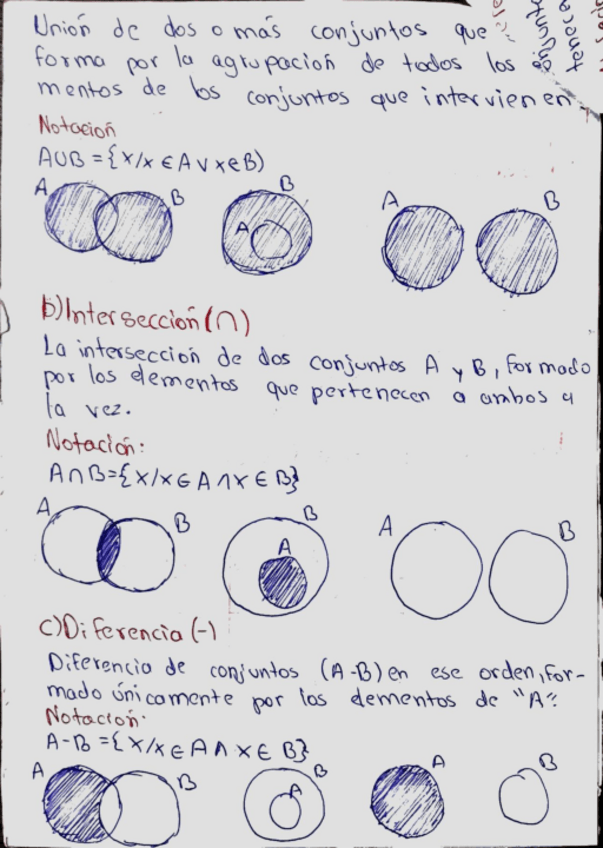 Unión de dos o más conjuntos que
forma por la agrupación de todos los
mentos de los conjuntos que intervienen
Notación
A∪B = {x/x ∈ A ∨ x ∈ B)
A B
B
A
A B
b) Intersección (∩)
La intersección de dos conjuntos A y B, formado
por los elementos que pertenecen a ambos a
la vez.
Notación:
A∩B={x/x ∈ A ∧ x ∈ B}
A B
B
A
A B
c) Diferencia (-)
Diferencia de conjuntos (A-B) en ese orden, for-
mado únicamente por los elementos de "A".
Notación:
A-B = {x/x ∈ A ∧ x ∈ B}
A B
B
A
A B